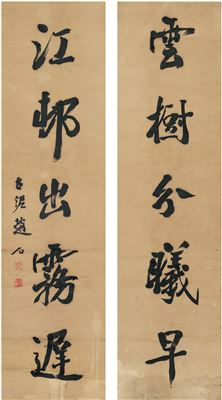 雲樹分曦早
江邨出霧遲
古泥趙石